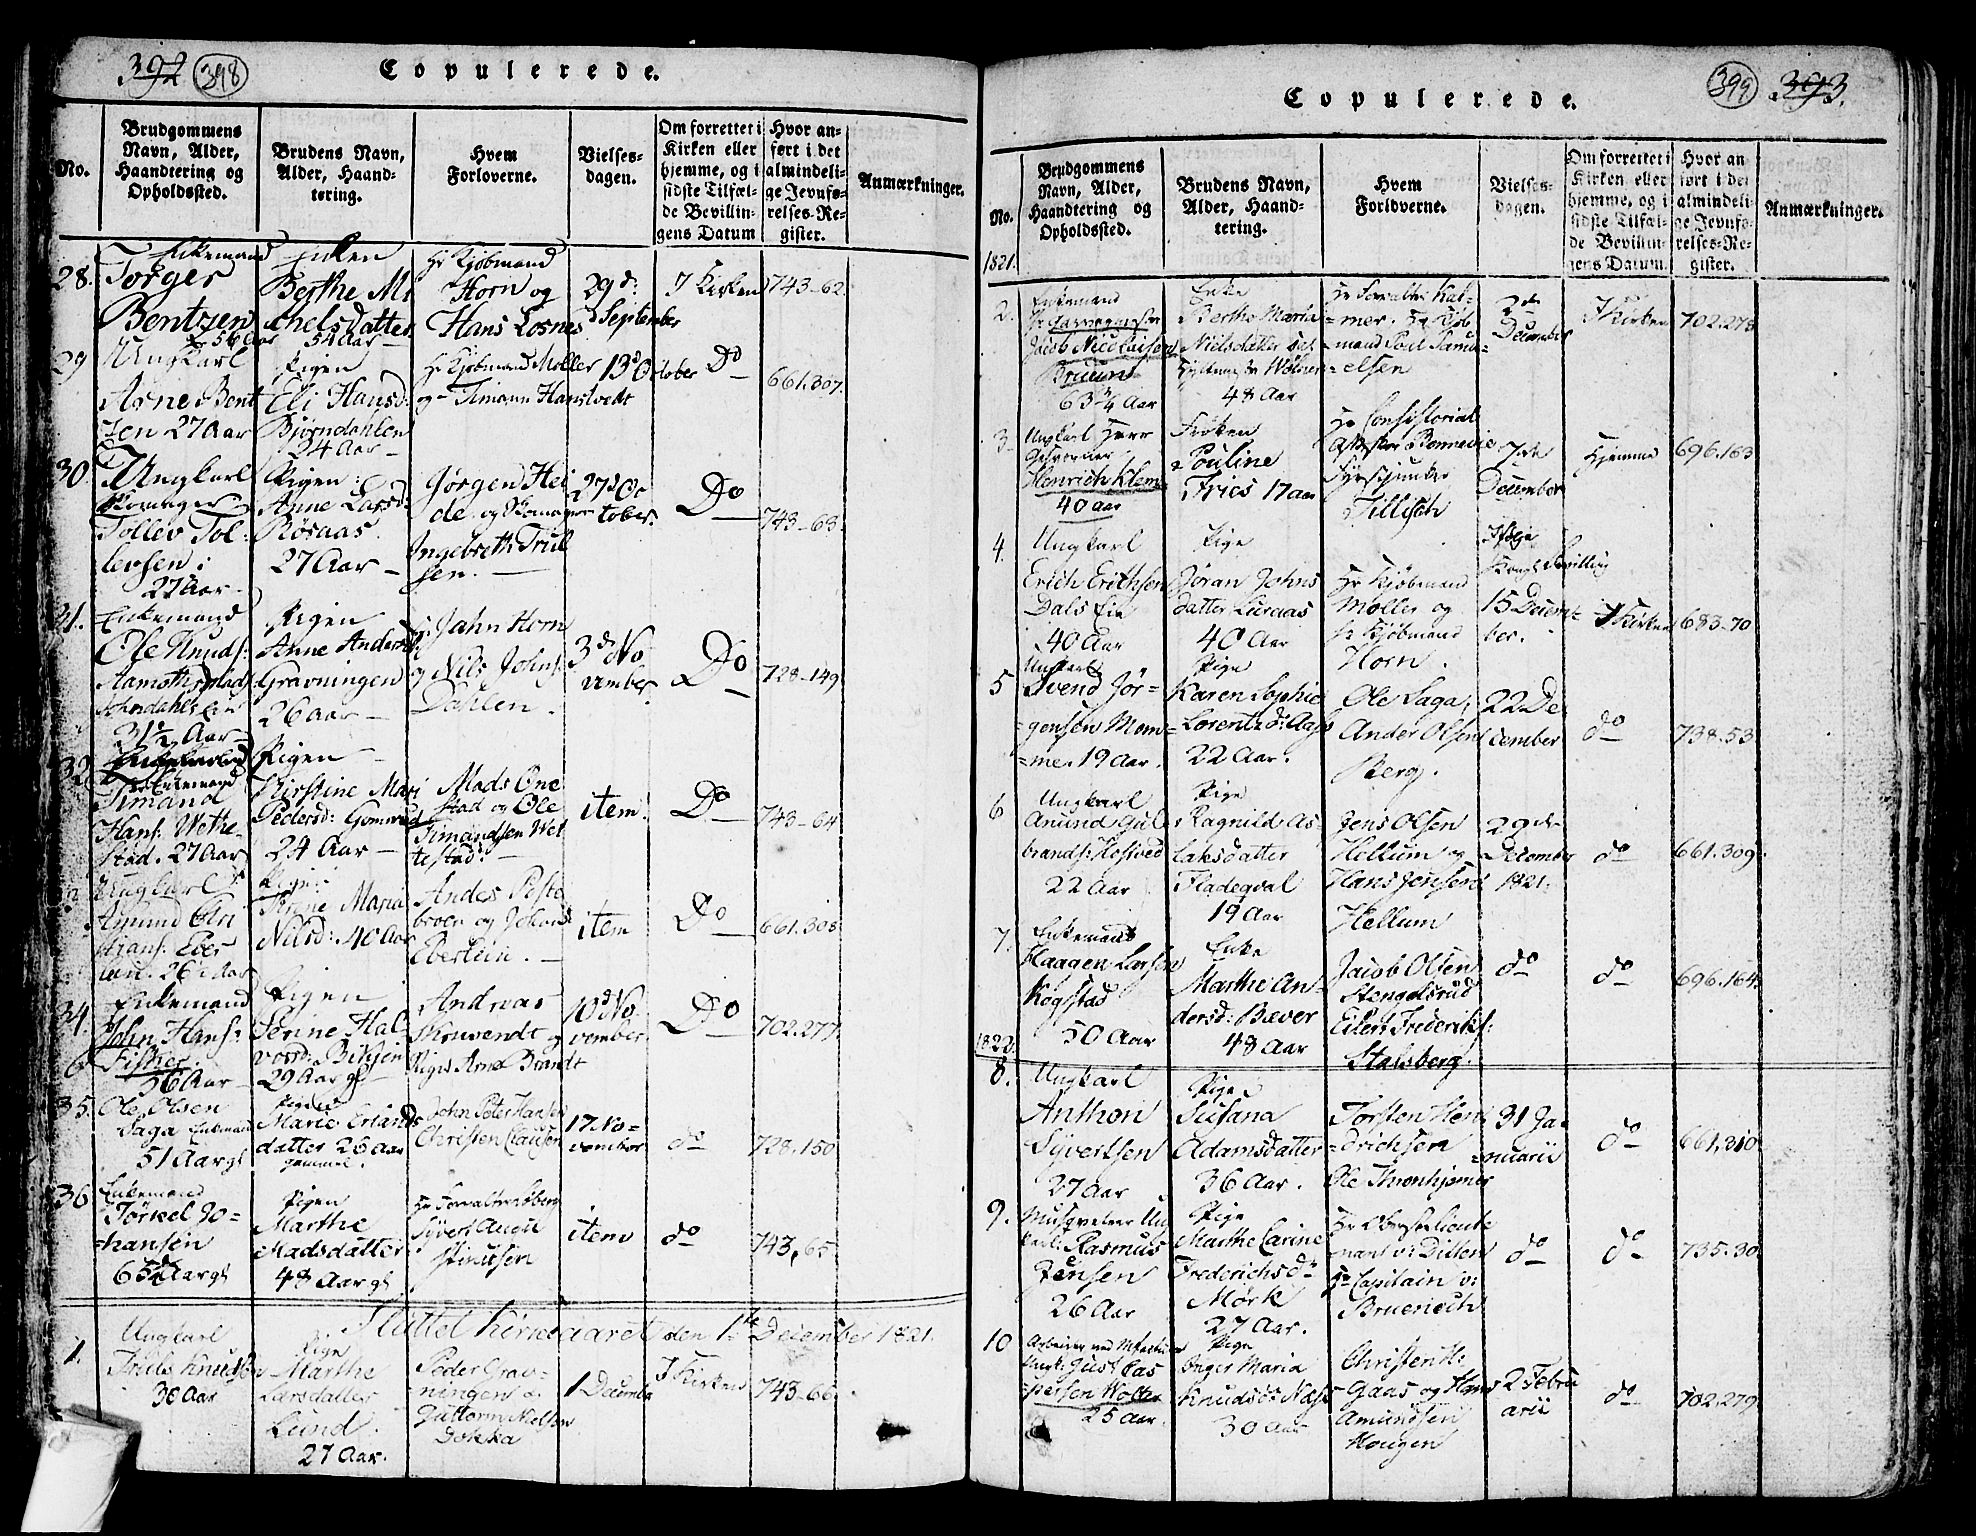 392 398 Copulerede.
No.
Brudgommens
Navn, Alder,
Haandtering og
Opholdssted.
Brudens Navn,
Alder, Haand-
tering.
Hvem
Forloverne.
Vielses-
dagen.
Om forrettet i
Kirken eller
hjemme, og i
sidste Tilfæl-
de Bevillin-
gens Datum
Hvor an-
ført i det
almindeli-
ge Jevnfø-
relses-Re-
gister.
Anmærkninger.
28.
Enkemand
Torger
Bentzen
56 Aar
Enken
Berthe Mi
chelsdatter
54 Aar
Hr Kjøbmand
Horn og
Hans Losnes
29d:
September
I Kirken
743-62.
29
Ungkarl
Arne Bent
sen 27 Aar
Pigen
Eli Hansd:
Bjørndahlen
24 Aar
Hr Kjøbmand Møller
og Timann Hanstvedt
13d October
Do
661.307.
30.
Ungkarl
Tollev Tol-
levsen i
27 Aar
Pigen
Anne Larsd:
Røsaas
27 Aar
Jørgen Hei
de og Skomager
Ingebreth Trul
sen.
27d Oc
tober.
Do
743-63.
31.
Enkemand
Ole Knuds:
31½ Aar
Pigen
Anne Andersd:
Gravningen
26 Aar
Hr John Horn
og Nils Johns:
Dahlen.
3d No
vember
Do
728-149
32.
Enkemand
Timand
Hans: Wethe-
stad. 27 Aar
Pigen
Kirstine Mari
Pedersd: Gomsrud
24 Aar
Mads One
stad og Ole
Timandsen Wet
testad:
item.
Do
743-64
Ungkarl
Amund Cri
stians: Eber
26½ Aar
Pigen:
Maria
Nilsd: 40 Aar
Andes Peste
broen og Johan
Eberlein.
item
Do
661.308
34.
Enkemand
John Hans:
Fisker
56 Aar
Pigen
Sørine Hal-
vorsd:
29 Aar gl
Andreas
og
Arne Brandt
10d No
vember
Do
702.277.
35.
Ole Olsen
Saga Enkemand
51 Aar gl
Pigen
Marie Erlands
datter 25 Aar
gammel.
John Peter Hansen
Christen Clausen
17 No=
vember
do
728.150
36
Enkemand
Tørkel Jo=
hansen
65 Aar gl
Pigen
Marthe
Madsdatter
48 Aar gl
Syvert
item
do
743,65
Sluttet Kirkeaaret den 1ste December 1821.
1.
Ungkarl
Truls Knudsen
36 Aar
Pige
Marthe
Larsdatter
Lund.
27 Aar.
Peder Grav-
ningen og
Guttorm Nielsen
Dokka
1 Decembr
I Kirken
743-66
Copulerede. 399 393.
No.
Brudgommens
Navn, Alder,
Haandtering og
Opholdssted.
Brudens Navn,
Alder, Haand-
tering.
Hvem
Forloverne.
Vielses-
dagen.
Om forrettet i
Kirken eller
hjemme, og i
sidste Tilfæl-
de Bevillin-
gens Datum.
Hvor an-
ført i det
almindeli-
ge Jevnfø-
relses-Re-
gister.
Anmærkninger.
1821.
2.
Enkemand
Jacob Nicolaisen
Bruun
63¾ Aar
Enke
Berthe Maria
Nielsdatter
48 Aar
Hr Forvalter Kat=
mer. Hr Kjøb
mand Poul Samu=
elsen
3de
December
I Kirken
702.278
3.
Ungkarl Herr
Henrich Klem
40 aar
Frøken
Pouline
Fries 17 aar
Hr Consistorial
Tillisch
7de
December
Hjemme
696.163
4.
Ungkarl
Erich Erichsen
Dals Eie
40 Aar
Pige
Jøran Johns
datter Luraas
40 Aar
Hr Kjøbmand
Møller og
Hr Kjøbmand
Horn.
Ifølge
Kongl. Bevilling
15 Decemb-
ber.
I Kirken
683-70
5
Ungkarl
Svend Jør=
gensen Mom=
me. 19 Aar.
Pige
Karen Sophie
Lorentzd: Aas
22 Aar.
Ole Saga,
Ander Olsen
Berg.
22 De
cember
do
738.53
6
Ungkarl
Anund Gul
brands:
22 Aar
Pige
Ragnild As
laksdatter
Fladeqval
19 Aar
Jens Olsen
Hellum og
Hans Jensen
Hellum
29de
December
1821.
do
661.309.
7.
Enkemand
Haagen Larsen
Kogstad
50 Aar
Enke
Marthe An-
dersd: Bæver
48 Aar
Jacob Olsen
Stengelsrud
Eilert Frederiks:
Stalsberg.
do
do
696.164.
1822.
8.
Ungkarl
Anthon
Syvertsen
27 Aar
Pige
Susana
Adamsdatter
36 Aar.
Torsten Hen
=drichsen
Ole Thronhjemer
31 Ja-
=nuarii
do
661,310
9.
Musqveteer Ung
karl: Rasmus
Jensen
26 Aar
Pige
Marthe Carine
Frederichsd:
Mørk
27 Aar.
Hr Oberstlieute
nant v: Ditten
Hr Capitain v:
do
do
735.30
10
Just Cas
persen Wolter
25 Aar.
Pige
Inger Maria
Knudsd: Næs
30 Aar
Christen H:
Gaas og Hans
Amundsen
Hougen
2 Febru
arii
do
702.279